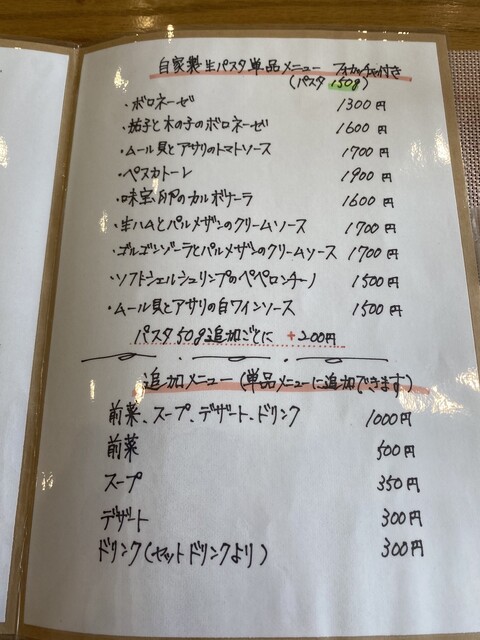 自家製生パスタ単品メニュー フォカッチャ付き
(パスタ150g)
・ボロネーゼ 1300円
・茄子と木の子のボロネーゼ 1600円
・ムール貝とアサリのトマトソース 1700円
・ペスカトーレ 1900円
・味宝卵のカルボナーラ 1600円
・生ハムとパルメザンのクリームソース 1700円
・ゴルゴンゾーラとパルメザンのクリームソース 1700円
・ソフトシェルシュリンプのペペロンチーノ 1500円
・ムール貝とアサリの白ワインソース 1500円
パスタ50g追加ごとに +200円
追加メニュー (単品メニューに追加できます)
前菜、スープ、デザート、ドリンク 1000円
前菜 500円
スープ 350円
デザート 300円
ドリンク(セットドリンクより) 300円